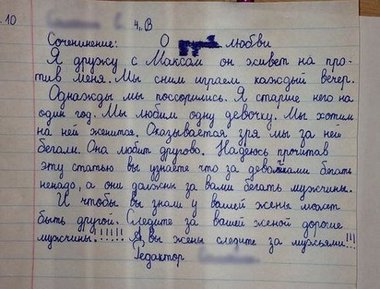 10
4 В
Сочинение: О любви
Я дружу с Максом он живет на про-
тив меня. Мы сним играем каждый вечер.
Однажды мы поссорились. Я старше него на
один год. Мы любим одну девочку. Мы хотим
на ней женится. Оказывается зря мы за ней
бегали. Она любит другово. Надеюсь прочитав
эту статью вы узнаете что за девочками бегать
ненадо, а они должни за вами бегать мужчины.
И чтобы вы знали у вашей жены может
быть другой. Следите за вашей женой дорогие
мужчины!!!!!! А вы жены следите за мужьями!!!
Редактор